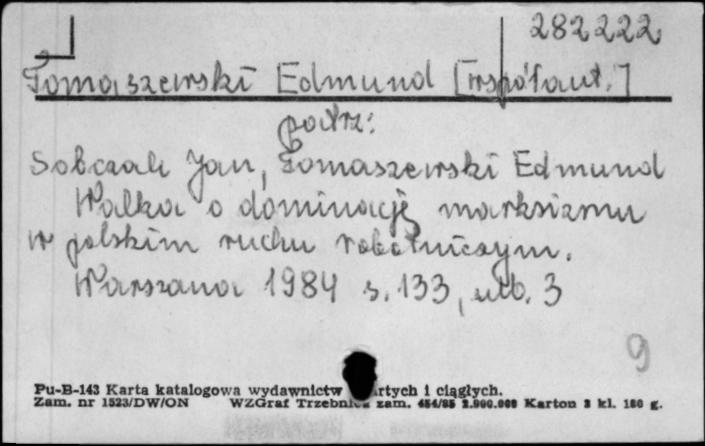 282222
Tomaszewski Edmund [współaut.]
patrz:
Sobczak Jan, Tomaszewski Edmund
Walka o dominację marksizmu
w polskim ruchu robotniczym.
Warszawa 1984 s. 133, nlb. 3
9
Pu-B-143 Karta katalogowa wydawnictw rtych i ciągłych.
Zam. nr 1523/DW/ON WZGraf Trzebnica zam. 454/85 2.000.000 Karton 3 kl. 180 g.